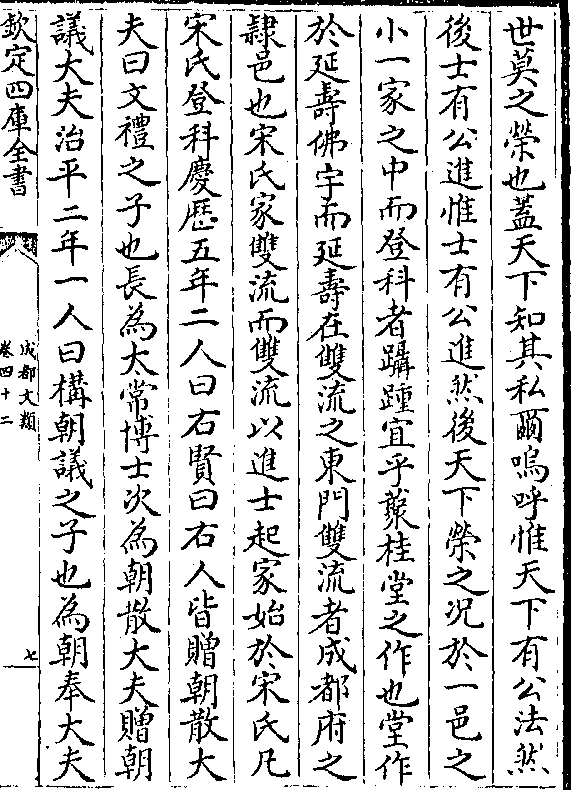 世莫之榮也蓋天下知其私爾嗚呼惟天下有公法然
後士有公進惟士有公進然後天下榮之况於一邑之
小一家之中而登科者躡踵宜乎蘂桂堂之作也堂作
於延壽佛宇而延壽在雙流之東門雙流者成都府之
隷邑也宋氏家雙流而雙流以進士起家始於宋氏凡
宋氏登科慶厯五年二人曰右賢曰右人皆贈朝散大
夫曰文禮之子也長為太常博士次為朝散大夫贈朝
議大夫治平二年一人曰構朝議之子也為朝奉大夫
欽定四庫全書
成都文類
卷四十二
七